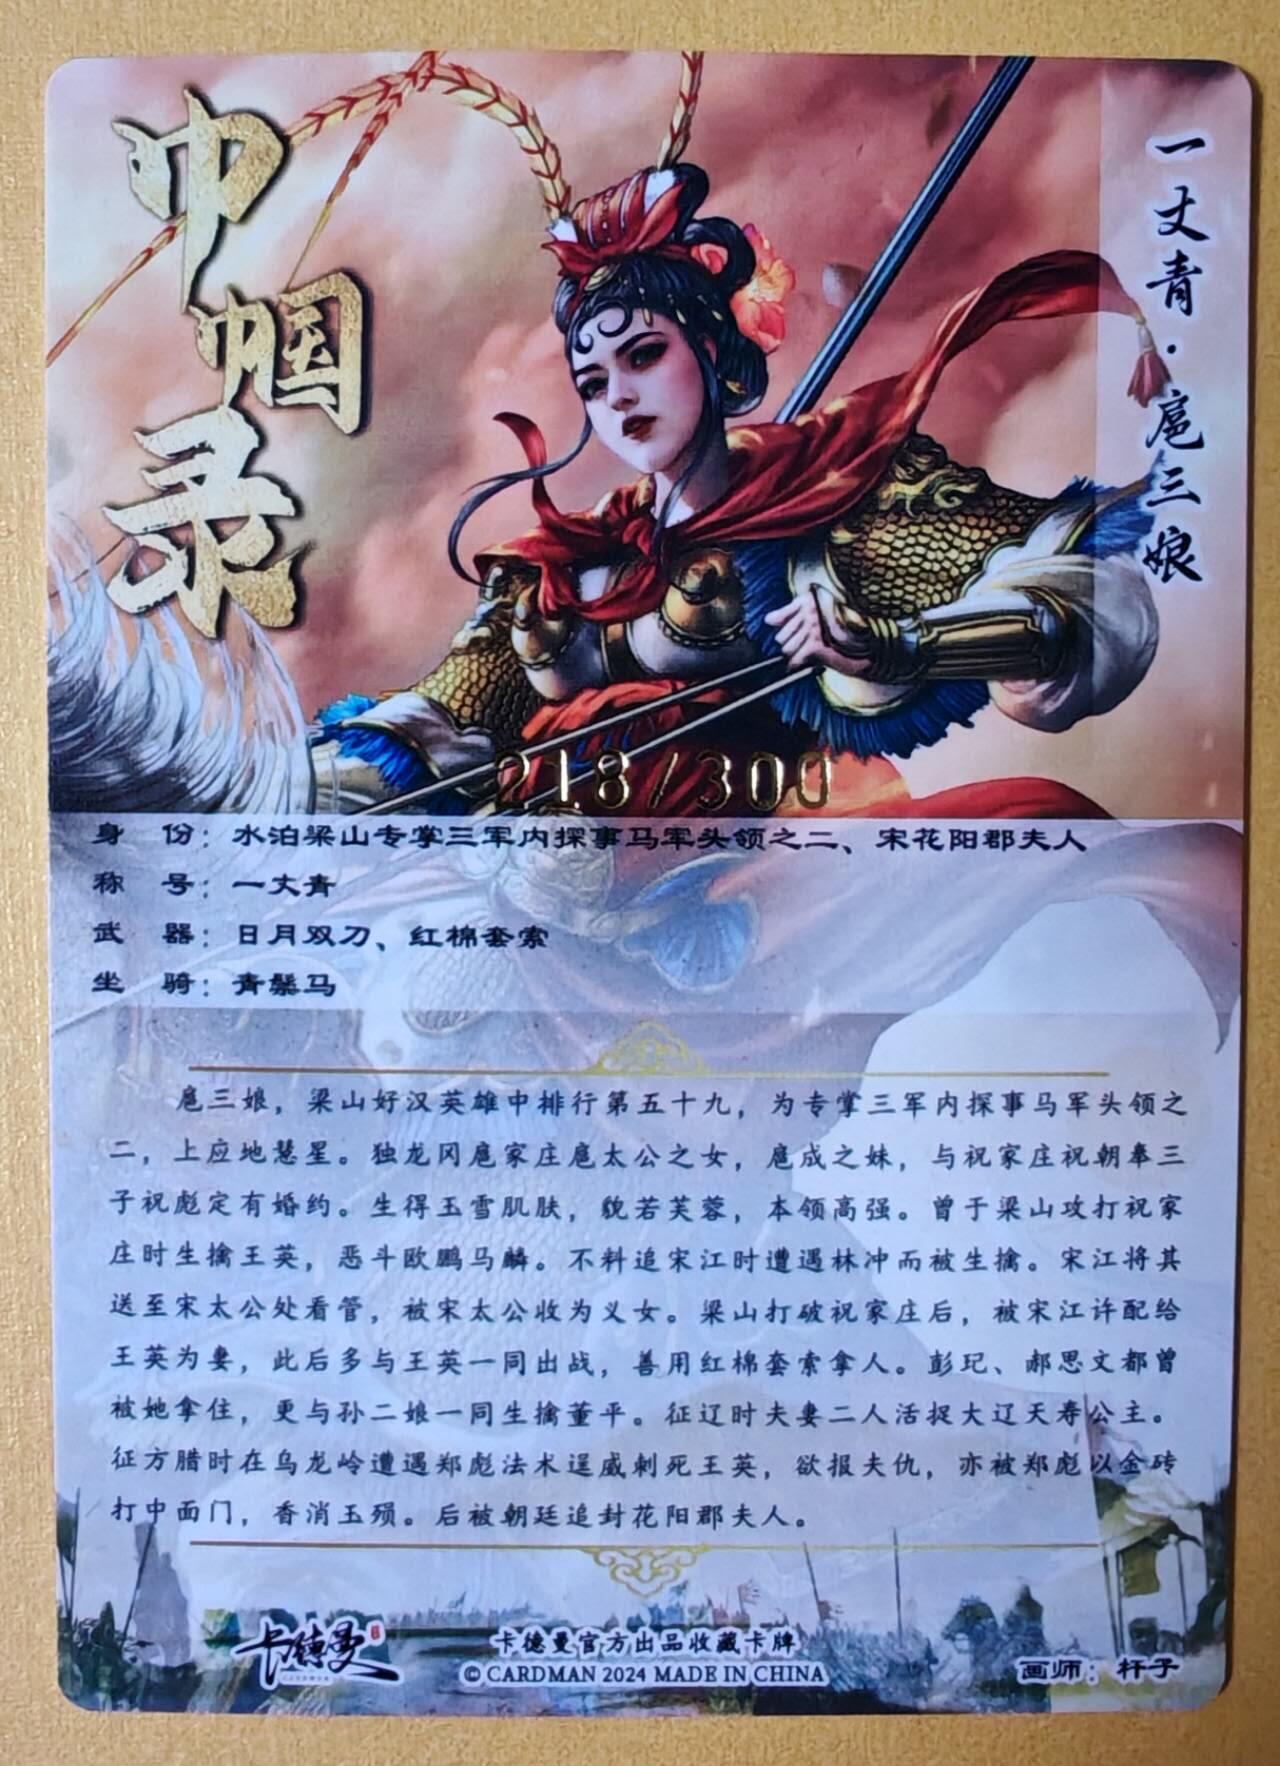 巾帼录
一丈青·扈三娘
218/300
身 份：水泊梁山专掌三军内探事马军头领之二、宋花阳郡夫人
称 号：一丈青
武 器：日月双刀、红棉套索
坐 骑：青鬃马
扈三娘，梁山好汉英雄中排行第五十九，为专掌三军内探事马军头领之
二，上应地慧星。独龙冈扈家庄扈太公之女，扈成之妹，与祝家庄祝朝奉三
子祝彪定有婚约。生得玉雪肌肤，貌若芙蓉，本领高强。曾于梁山攻打祝家
庄时生擒王英，恶斗欧鹏马麟。不料追宋江时遭遇林冲而被生擒。宋江将其
送至宋太公处看管，被宋太公收为义女。梁山打破祝家庄后，被宋江许配给
王英为妻，此后多与王英一同出战，善用红棉套索拿人。彭玘、郝思文都曾
被她拿住，更与孙二娘一同生擒董平。征辽时夫妻二人活捉大辽天寿公主。
征方腊时在乌龙岭遭遇郑彪法术逞威刺死王英，欲报夫仇，亦被郑彪以金砖
打中面门，香消玉殒。后被朝廷追封花阳郡夫人。
卡德曼
卡德曼官方出品收藏卡牌
© CARDMAN 2024 MADE IN CHINA
画师：杆子